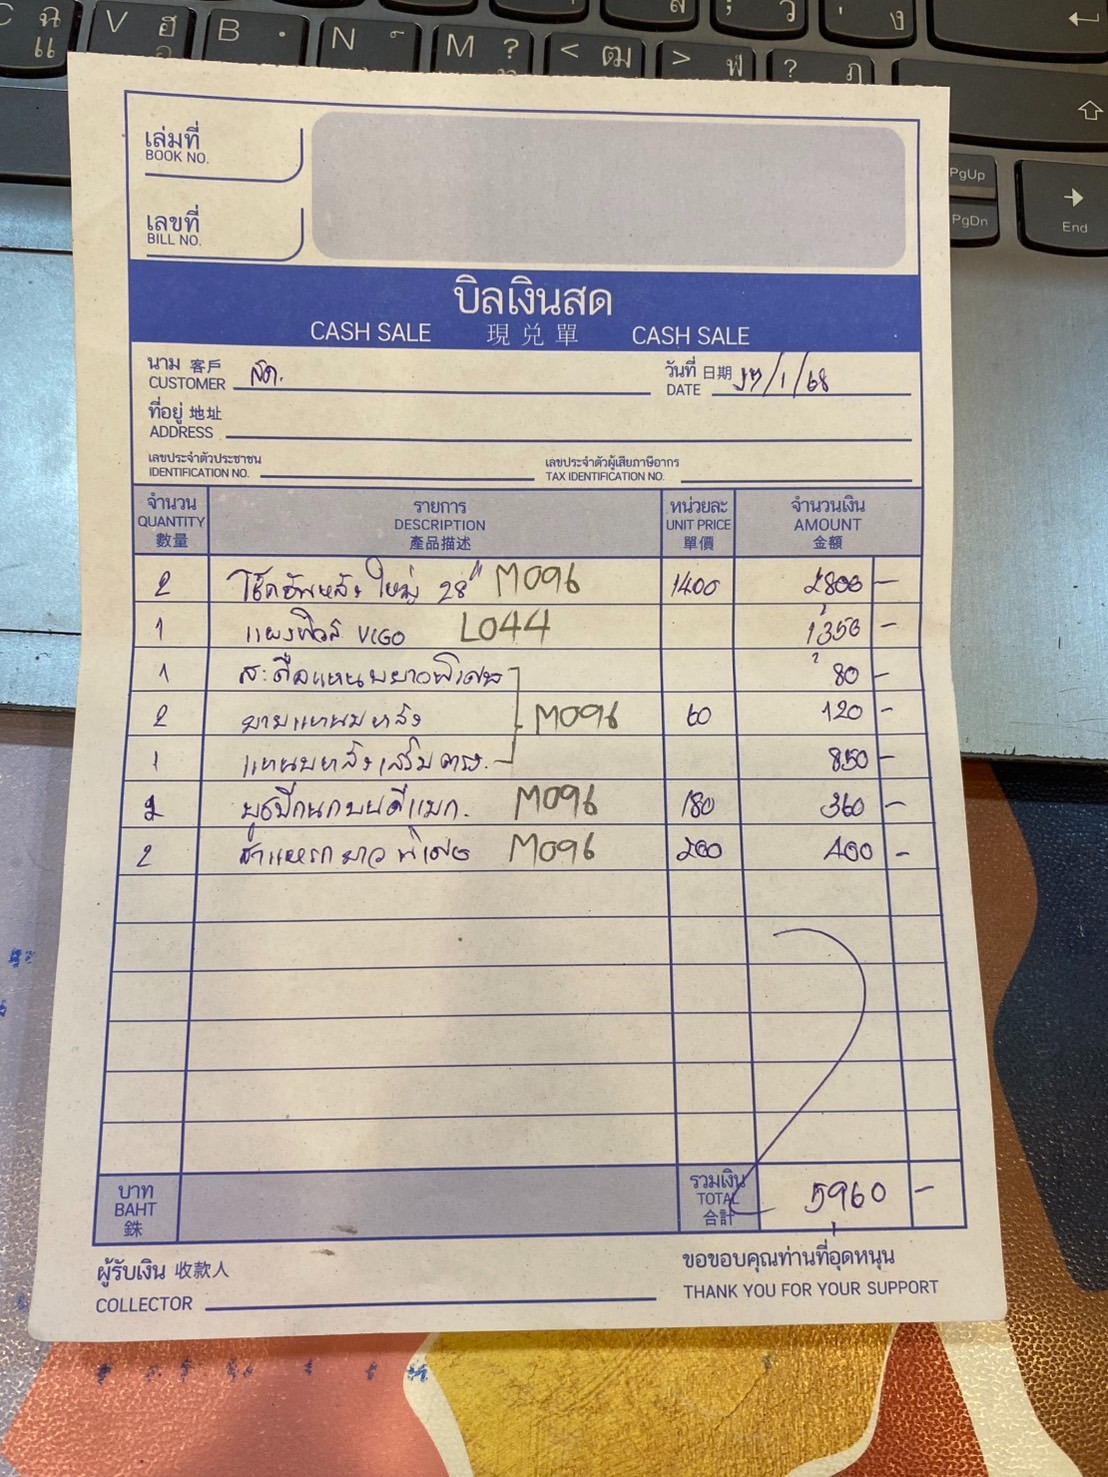 เล่มที่
BOOK NO.
เลขที่
BILL NO.
บิลเงินสด
CASH SALE 現兌單 CASH SALE
นาม 客戶
CUSTOMER สด.
วันที่ 日期
DATE 17/1/68
ที่อยู่ 地址
ADDRESS
เลขประจำตัวประชาชน
IDENTIFICATION NO.
เลขประจำตัวผู้เสียภาษีอากร
TAX IDENTIFICATION NO.
จำนวน รายการ หน่วยละ จำนวนเงิน
QUANTITY DESCRIPTION UNIT PRICE AMOUNT
數量 產品描述 單價 金額
2 โช๊คอัพหลัง ใหญ่ 28" M096 1400 2800 –
1 แผงฟิวส์ VIGO L044 1,350 –
1 สะดือแหนบยาวพิเศษ 80 –
2 ยางแหนบหลัง M096 60 120 –
1 แหนบหลังเสริม 850 –
2 บูชปีกนกบนดีแมก. M096 180 360 –
2 ยาว พิเศษ M096 200 400 –
บาท
BAHT
銖
รวมเงิน
TOTAL
合計
5,960 –
ผู้รับเงิน 收款人
COLLECTOR
ขอขอบคุณท่านที่อุดหนุน
THANK YOU FOR YOUR SUPPORT
V ฮ
B
N
M ?
< ฒ
> ฬ
? ฦ
PgUp
PgDn
End